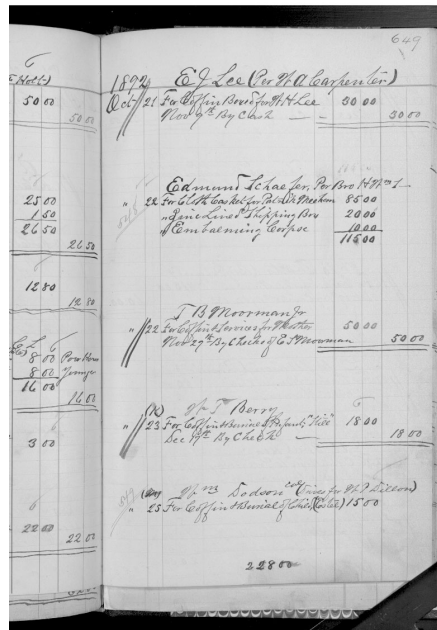 649
6
50 00
50 00
25 00
1 50
26 50
26 50
12 80
12 80
8 00
8 00
16 00
16 00
3 00
22 00
22 00
1892 E J Lee (Per W A Carpenter)
Oct 21 For Coffin Boxed for W H Lee 50 00
Nov 9th By Cash 50 00
Edmund Schaefer, Per Bro H
" 22 For Cloth Casket for 85 00
" Zinc Lined Shipping Box 20 00
" Embalming Corpse 10 00
115 00
T B Moorman Jr
" 22 For Coffin & Services for Mother 50 00
Nov 29th By Check of E S Moorman 50 00
Berry
" 23 For Coffin & Burial of Infant, "Hill" 18 00
Dec 19th By Check 18 00
Wm Dodson col (Drives for Dillon)
" 25 For Coffin & Burial of Child, 15 00
228 00